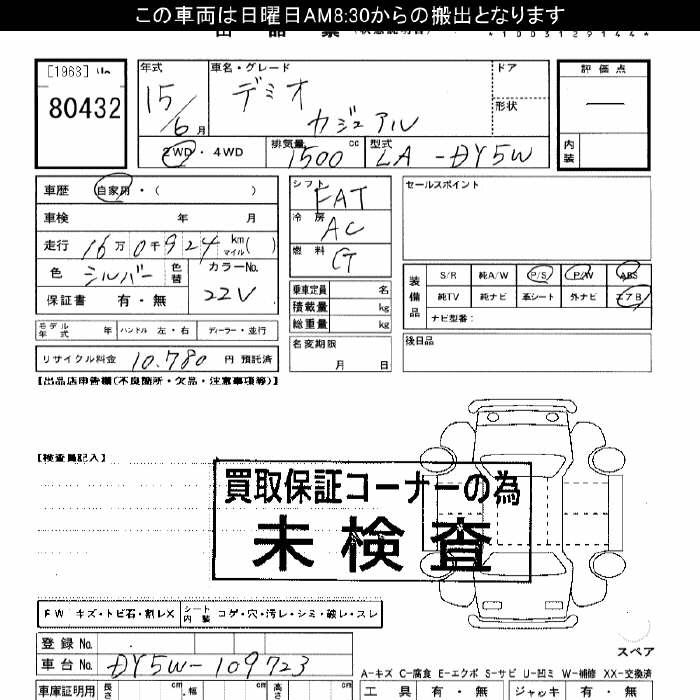 この車両は日曜日AM8:30からの搬出となります
[1963]
80432
年式
15/6月
車名・グレード
デミオ
カジュアル
ドア
形状
評価点
―
内装
2WD・4WD
排気量
1500cc
型式
LA-DY5W
車歴
自家用・( )
車検 年 月
走行 16万0千924 km マイル( )
色 シルバー 色替
カラーNo.
22V
保証書 有・無
シフト FAT
冷房 AC
燃料 G
乗車定員 名
積載量 kg
総重量 kg
名変期限
月 日
セールスポイント
装備品
S/R 純A/W P/S P/W ABS
純TV 純ナビ 革シート 外ナビ エアB
ナビ型番:
後日品
モデル年式 年 ハンドル 左・右 ディーラー・並行
リサイクル料金 10.780 円 預託済
【出品店申告欄(不良箇所・欠品・注意事項等)】
【検査員記入】
買取保証コーナーの為
未検査
FW キズ・トビ石・割レX
シート内装 コゲ・穴・汚レ・シミ・破レ・スレ
登録No.
車台No. DY5W-109723
スペア
A-キズ C-腐食 E-エクボ S-サビ U-凹ミ W-補修 XX-交換済
車庫証明用 長さ cm 幅 cm 高さ cm
工具 有・無 ジャッキ 有・無